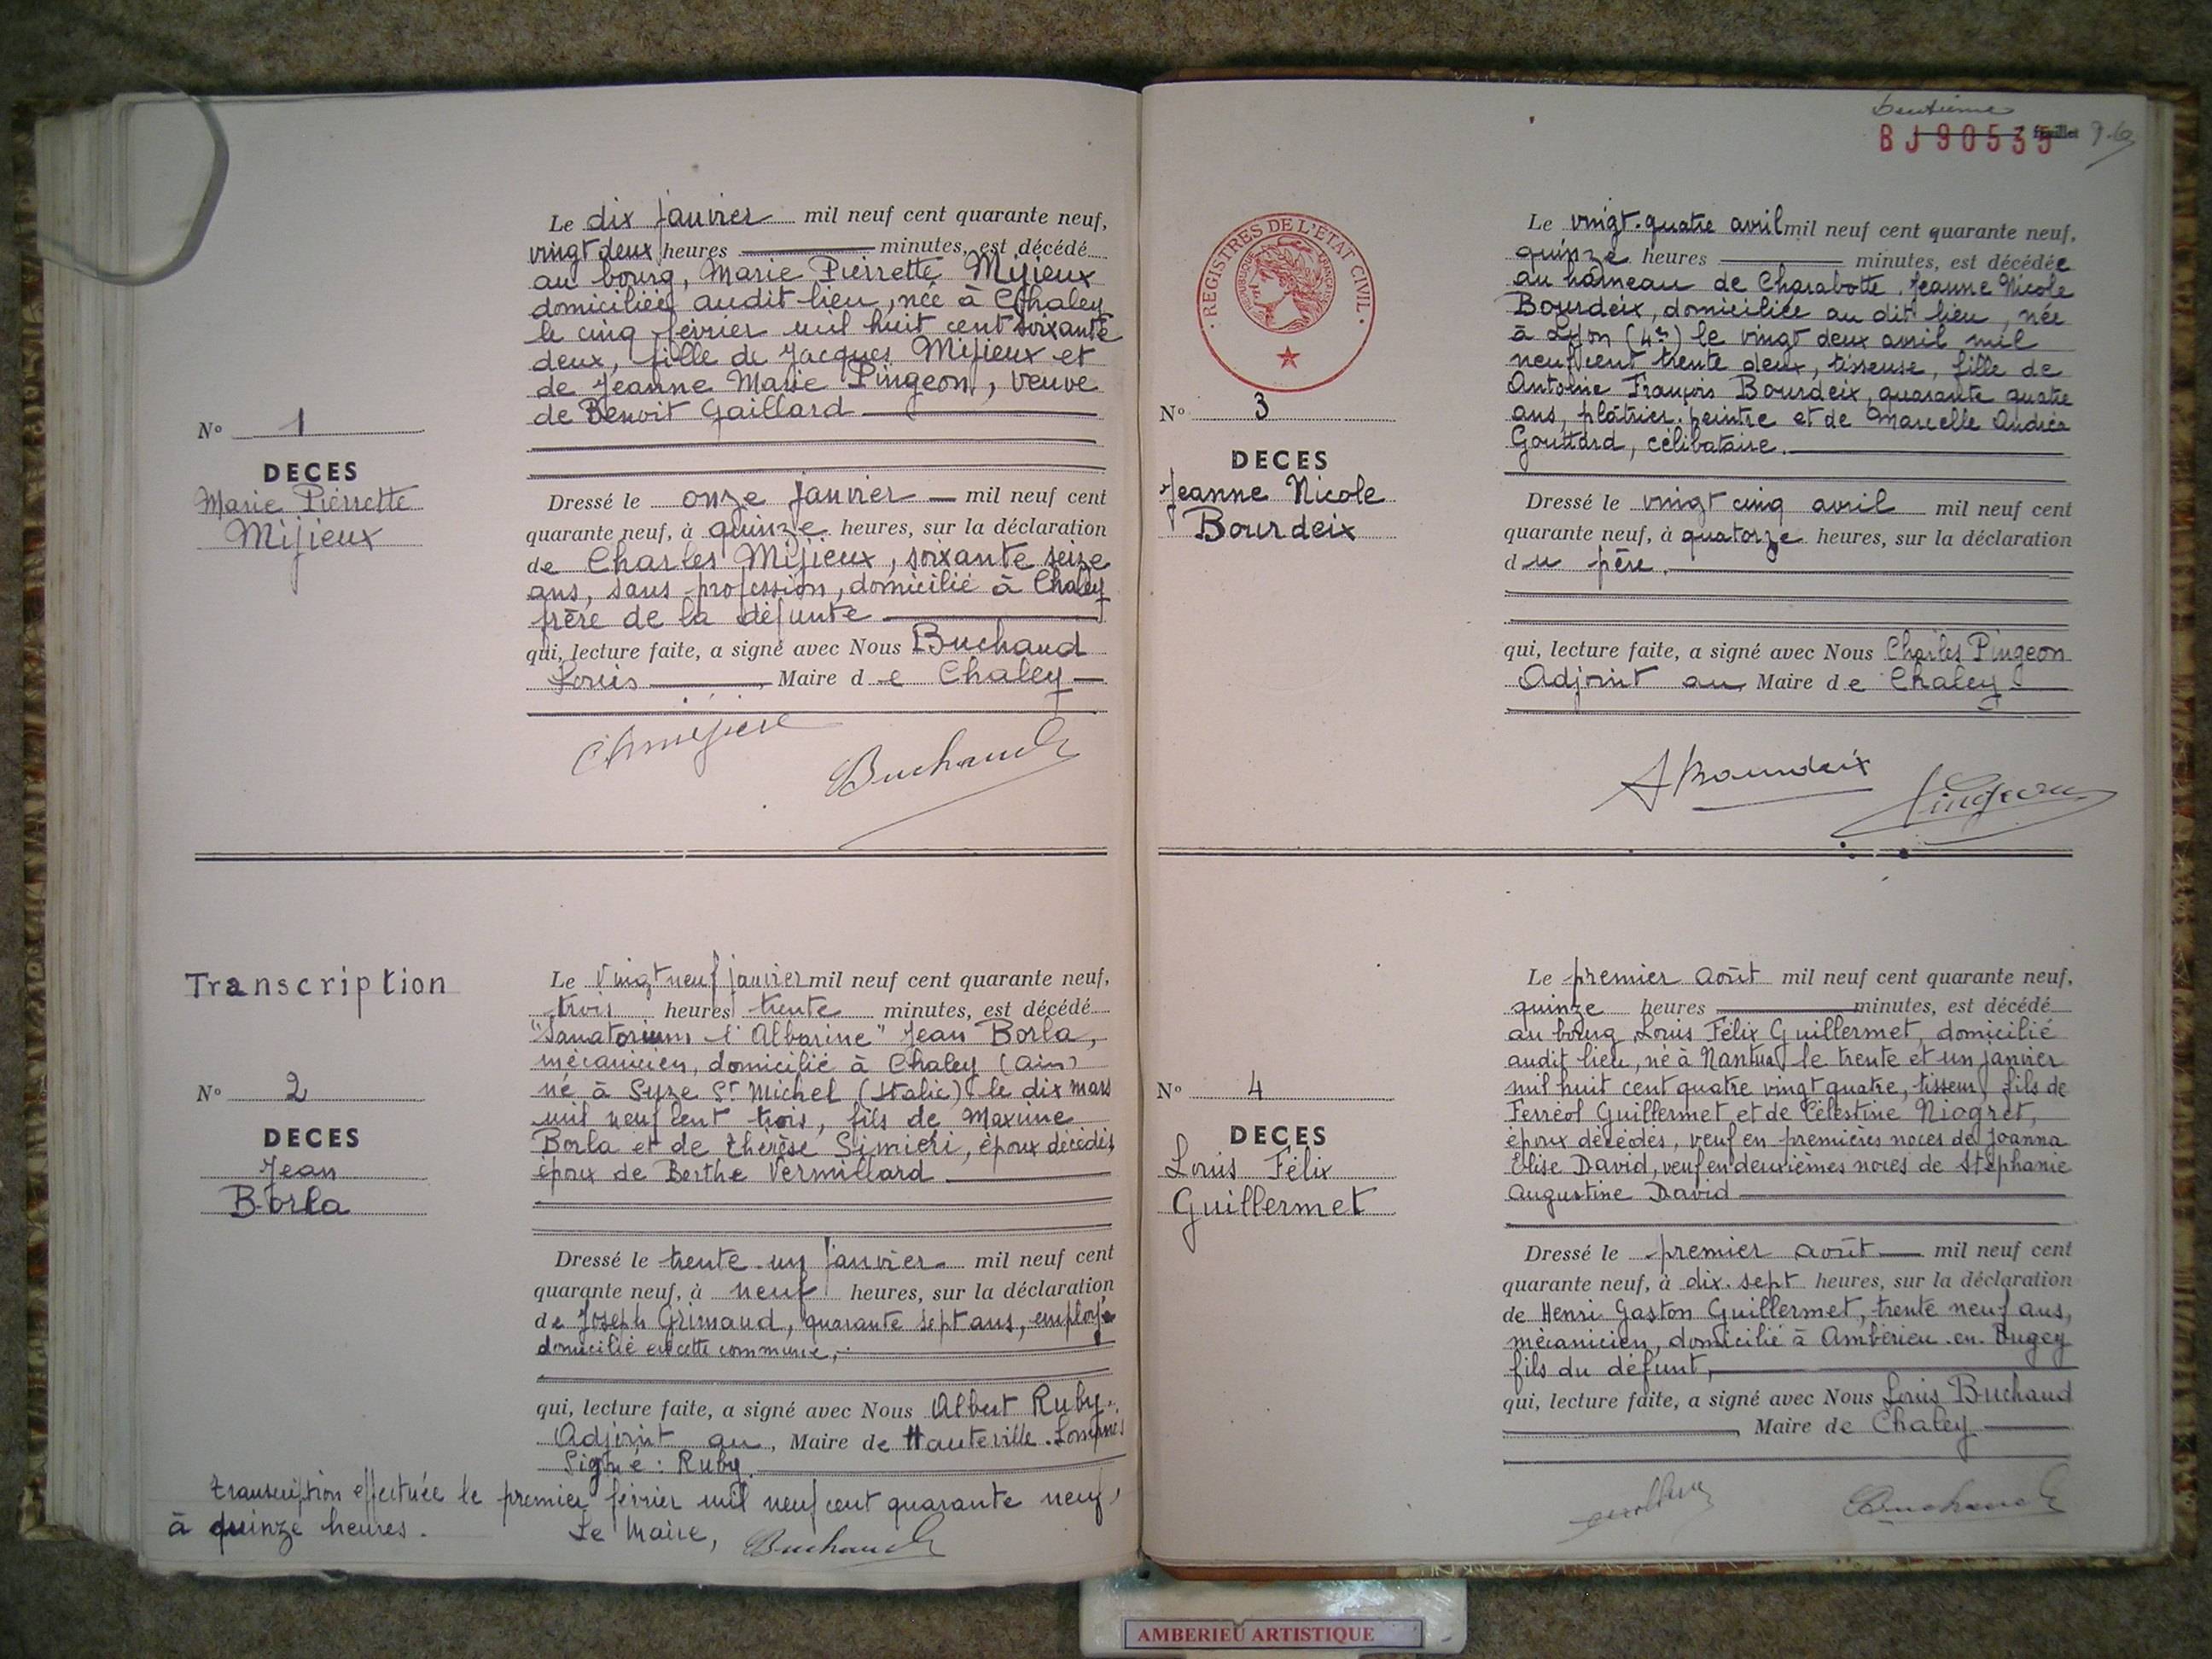 Le dix janvier mil neuf cent quarante neuf,
vingt deux heures minutes, est décédé
au bourg, Marie Pierrette Mijieux
domiciliée audit lieu, née à Chaley
le cinq février mil huit cent soixante
deux, fille de Jacques Mijieux et
de Jeanne Marie Pingeon, veuve
de Benoit Gaillard
N° 1
DECES
Marie Pierrette
Mijieux
Dressé le onze janvier mil neuf cent
quarante neuf, à quinze heures, sur la déclaration
de Charles Mijieux, soixante seize
ans, sans profession, domicilié à Chaley
frère de la défunte
qui, lecture faite, a signé avec Nous Buchaud
Louis, Maire de Chaley
Buchaud
Transcription
Le Vingt neuf janvier mil neuf cent quarante neuf,
trois heures trente minutes, est décédé
"Sanatorium l'Albarine" Jean Borla,
mécanicien, domicilié à Chaley (Ain)
né à Syze St Michel (Italie) le dix mars
mil neuf cent trois, fils de Maxime
Borla et de Thérèse Simiéri, époux décédés,
époux de Berthe Vermillard
N° 2
DECES
Jean
Borla
Dressé le trente-un janvier mil neuf cent
quarante neuf, à neuf heures, sur la déclaration
de Joseph Grimaud, quarante sept ans, employé
domicilié en cette commune,
qui, lecture faite, a signé avec Nous Albert Ruby,
Adjoint au, Maire de Hauteville-Lompnes
Signé : Ruby.
Transcription effectuée le premier février mil neuf cent quarante neuf,
à quinze heures. Le Maire, Buchaud
deuxième
BJ90535 feuillet
REGISTRES DE L'ETAT CIVIL
REPUBLIQUE FRANÇAISE
Le vingt-quatre avril mil neuf cent quarante neuf,
quinze heures minutes, est décédée
au hameau de Charabotte, Jeanne Nicole
Bourdeix, domiciliée au dit lieu, née
à Lyon (4e) le vingt deux avril mil
neuf cent trente deux, tisseuse, fille de
Antoine François Bourdeix, quarante quatre
ans, plâtrier peintre et de Marcelle Andréa
Gouttard, célibataire.
N° 3
DECES
Jeanne Nicole
Bourdeix
Dressé le vingt cinq avril mil neuf cent
quarante neuf, à quatorze heures, sur la déclaration
du père.
qui, lecture faite, a signé avec Nous Charles Pingeon
Adjoint au Maire de Chaley
A Bourdeix
Pingeon
Le premier août mil neuf cent quarante neuf,
quinze heures minutes, est décédé
au bourg Louis Félix Guillermet, domicilié
audit lieu, né à Nantua le trente et un janvier
mil huit cent quatre vingt quatre, tisseur, fils de
Ferréol Guillermet et de Célestine Niogret,
époux décédés, veuf en premières noces de Joanna
Elise David, veuf en deuxièmes noces de Stéphanie
Augustine David
N° 4
DECES
Louis Félix
Guillermet
Dressé le premier août mil neuf cent
quarante neuf, à dix-sept heures, sur la déclaration
de Henri Gaston Guillermet, trente neuf ans,
mécanicien, domicilié à Ambérieu-en-Bugey
fils du défunt,
qui, lecture faite, a signé avec Nous Louis Buchaud
Maire de Chaley
Buchaud
AMBERIEU ARTISTIQUE